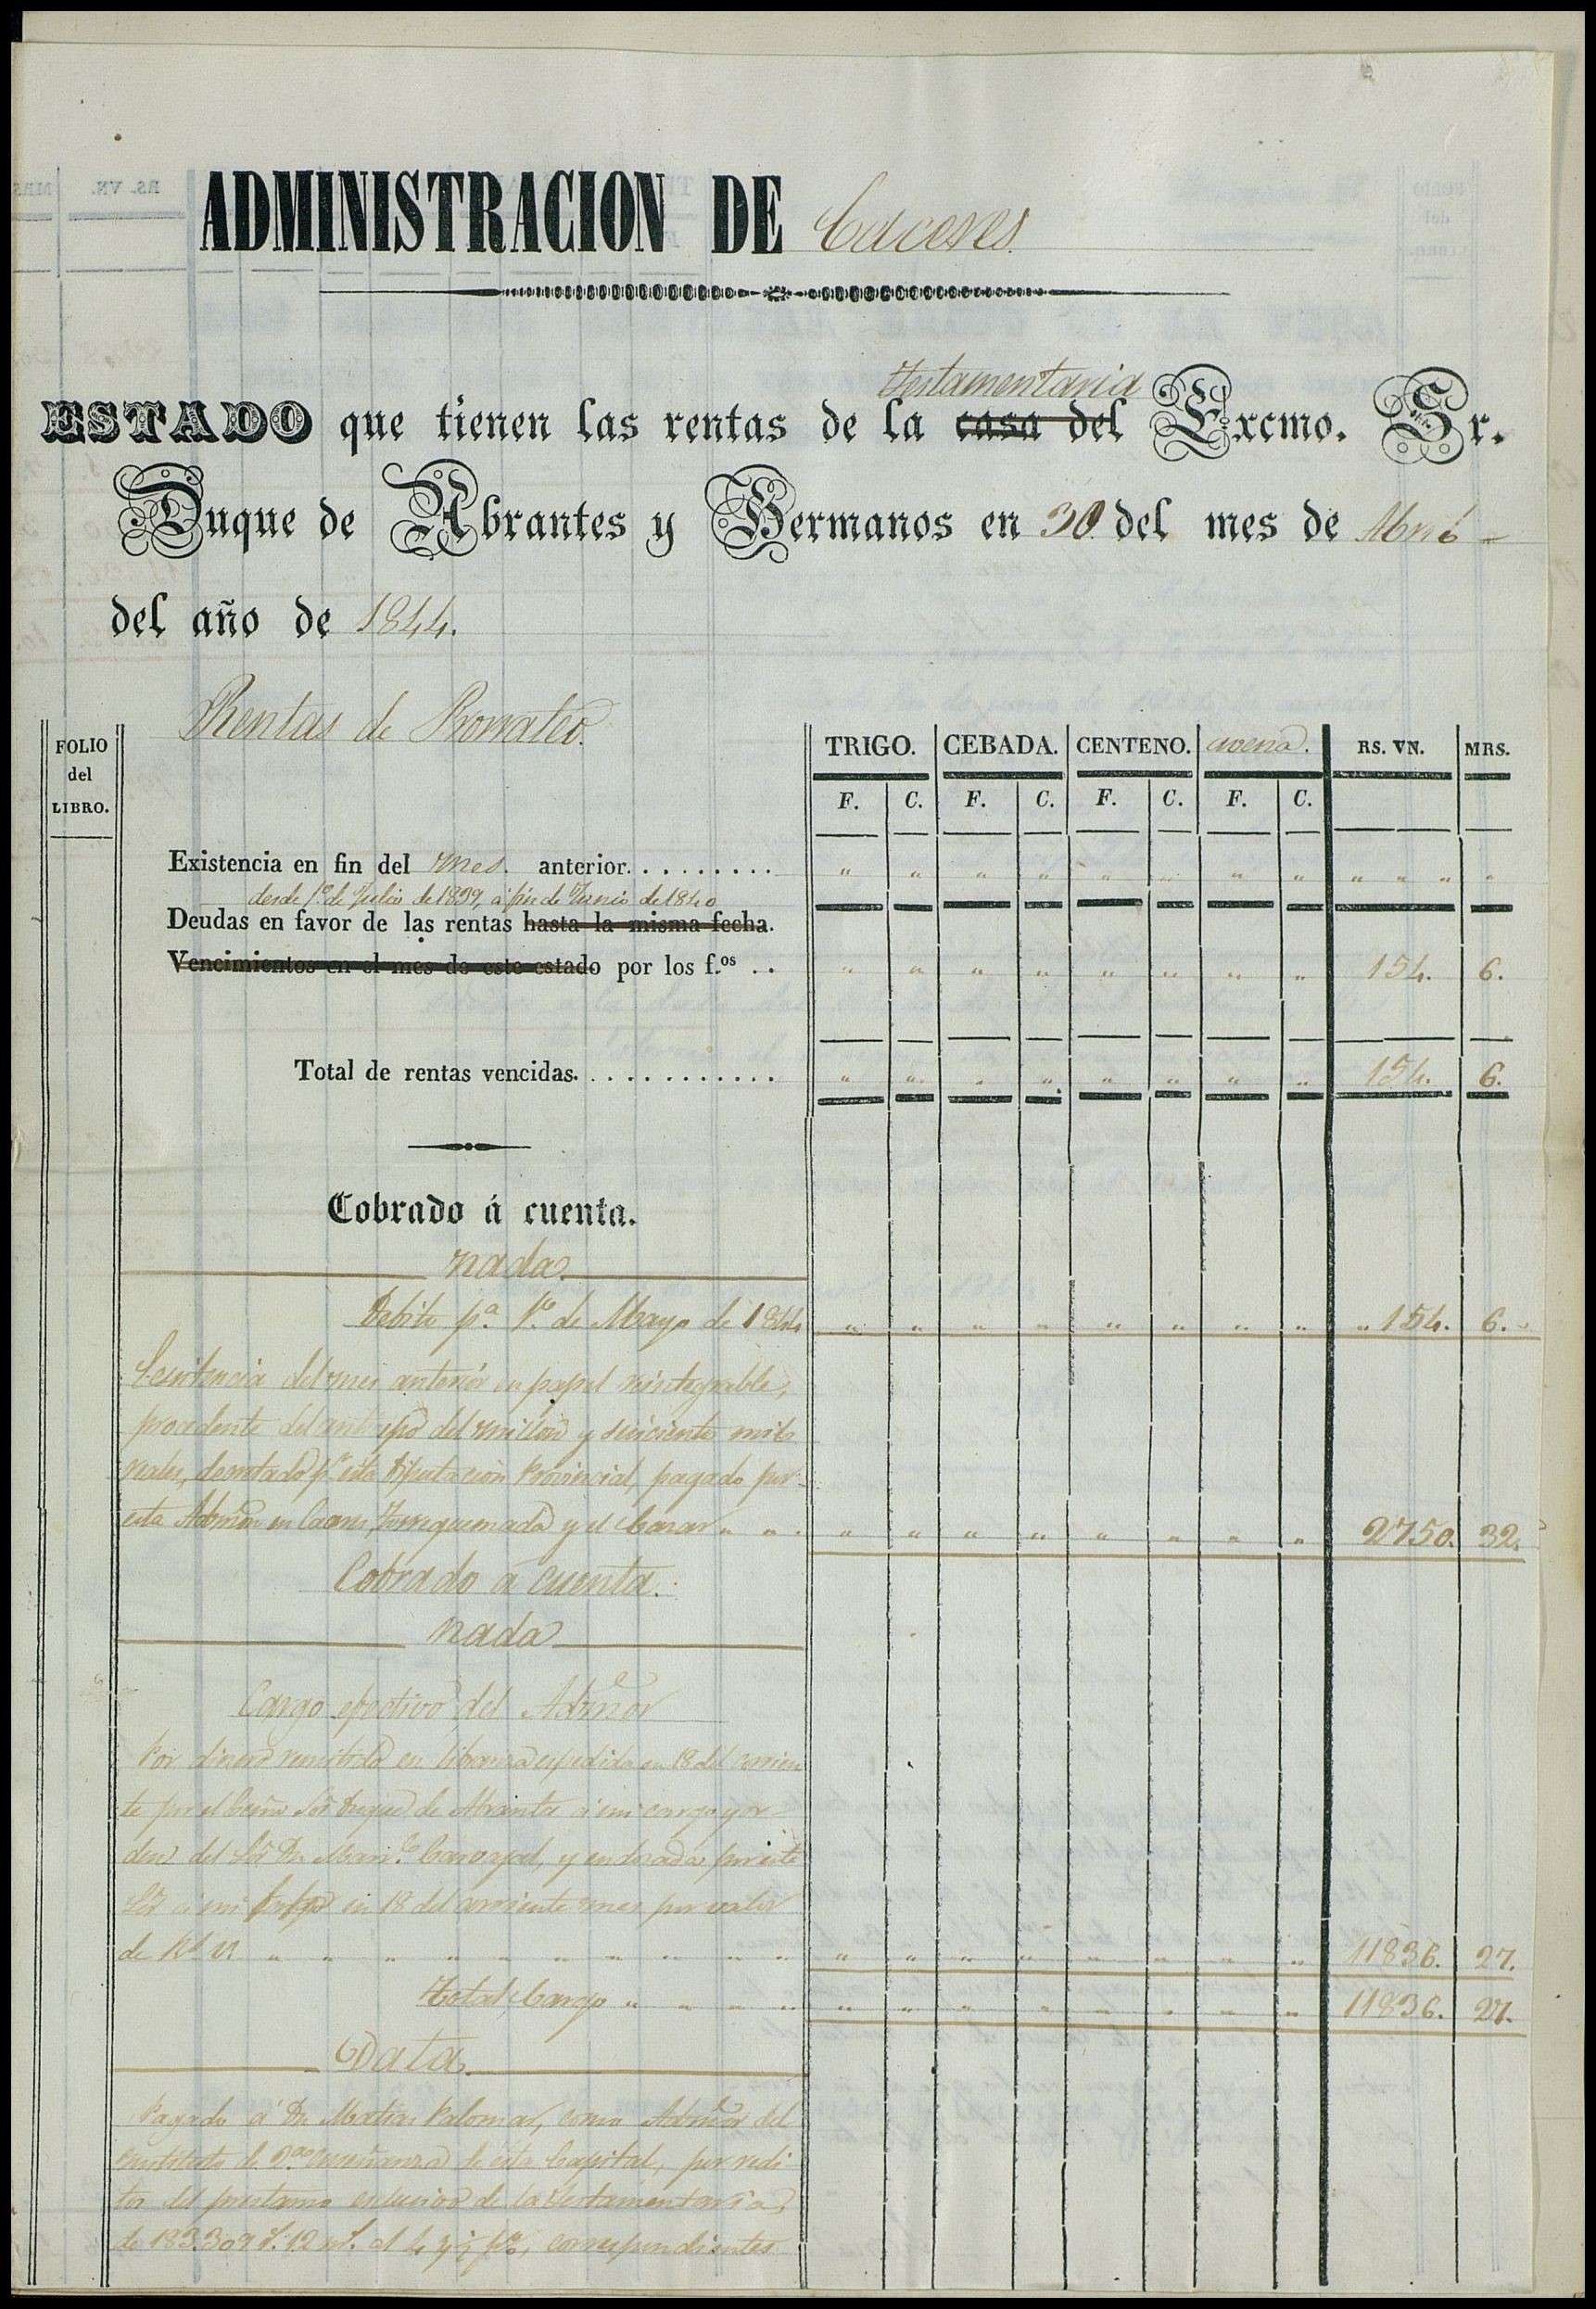 ADMINISTRACION DE Caceres
Testamentaria
ESTADO que tienen las rentas de la casa del Excmo. Sr.
Duque de Abrantes y Hermanos en 30 del mes de Abril
del año de 1844.
Rentas de Prorrateo.
FOLIO del LIBRO.
TRIGO. CEBADA. CENTENO. avena. RS. VN. MRS.
F. C. F. C. F. C. F. C.
Existencia en fin del mes. anterior. . . . . . . . . " " " " " " " " " " " "
desde 1º de Julio de 1839, a fin de Junio de 1840
Deudas en favor de las rentas hasta la misma fecha.
Vencimientos en el mes de este estado por los f.os . . " " " " " " " " 154. 6.
Total de rentas vencidas. . . . . . . . . . . . " " " " " " " " 154. 6.
Cobrado á cuenta.
nada
Debito pª 1º de Mayo de 1844 " " " " " " " " " 154. 6.
Existencia del mes anterior en papel reintegrable,
procedente del anticipo del millon y seiscientos mil
reales, decretado pr esta Diputacion Provincial, pagado por
esta Admon en Caceres, Torrequemada y el Casar " " . " " " " " " " " 2750. 32.
Cobrado a cuenta.
nada
Cargo efectivo del Admor
Por dinero remitido en libranza espedida en 18 del corrien
te por el Excmo Sor Duque de Abrantes á mi cargo y or-
den del Sor Dn Mari.no Carvajal, y endosada por este
Sor á mi en 18 del corriente mes por valor
de Rs vn " " " " " " " " " " " " " " " " " " 11836. 27.
Total Cargo " " " " " " " " " " " " 11836. 27.
Data
Pagado á Dn Matias Palomar, como Admor del
instituto de 2ª enseñanza de esta Capital, por redi
tos del prestamo esclusivo de la Testamentaria,
de 183.309 rs. 12 ms. al 4 y ½ p%, correspondientes